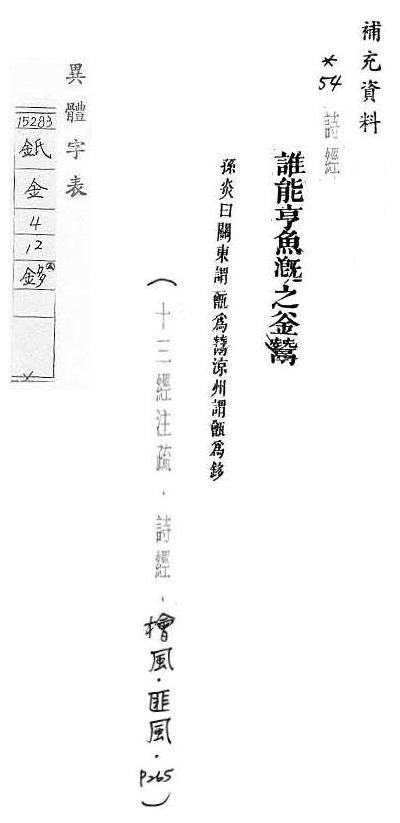 補充資料
*54 詩經
誰能亨魚漑之釜鬵
孫炎曰關東謂甑爲鬵涼州謂甑爲鉹
(十三經注疏．詩經．檜風．匪風．P265)
異體字表
15283
金
4
12
鉹